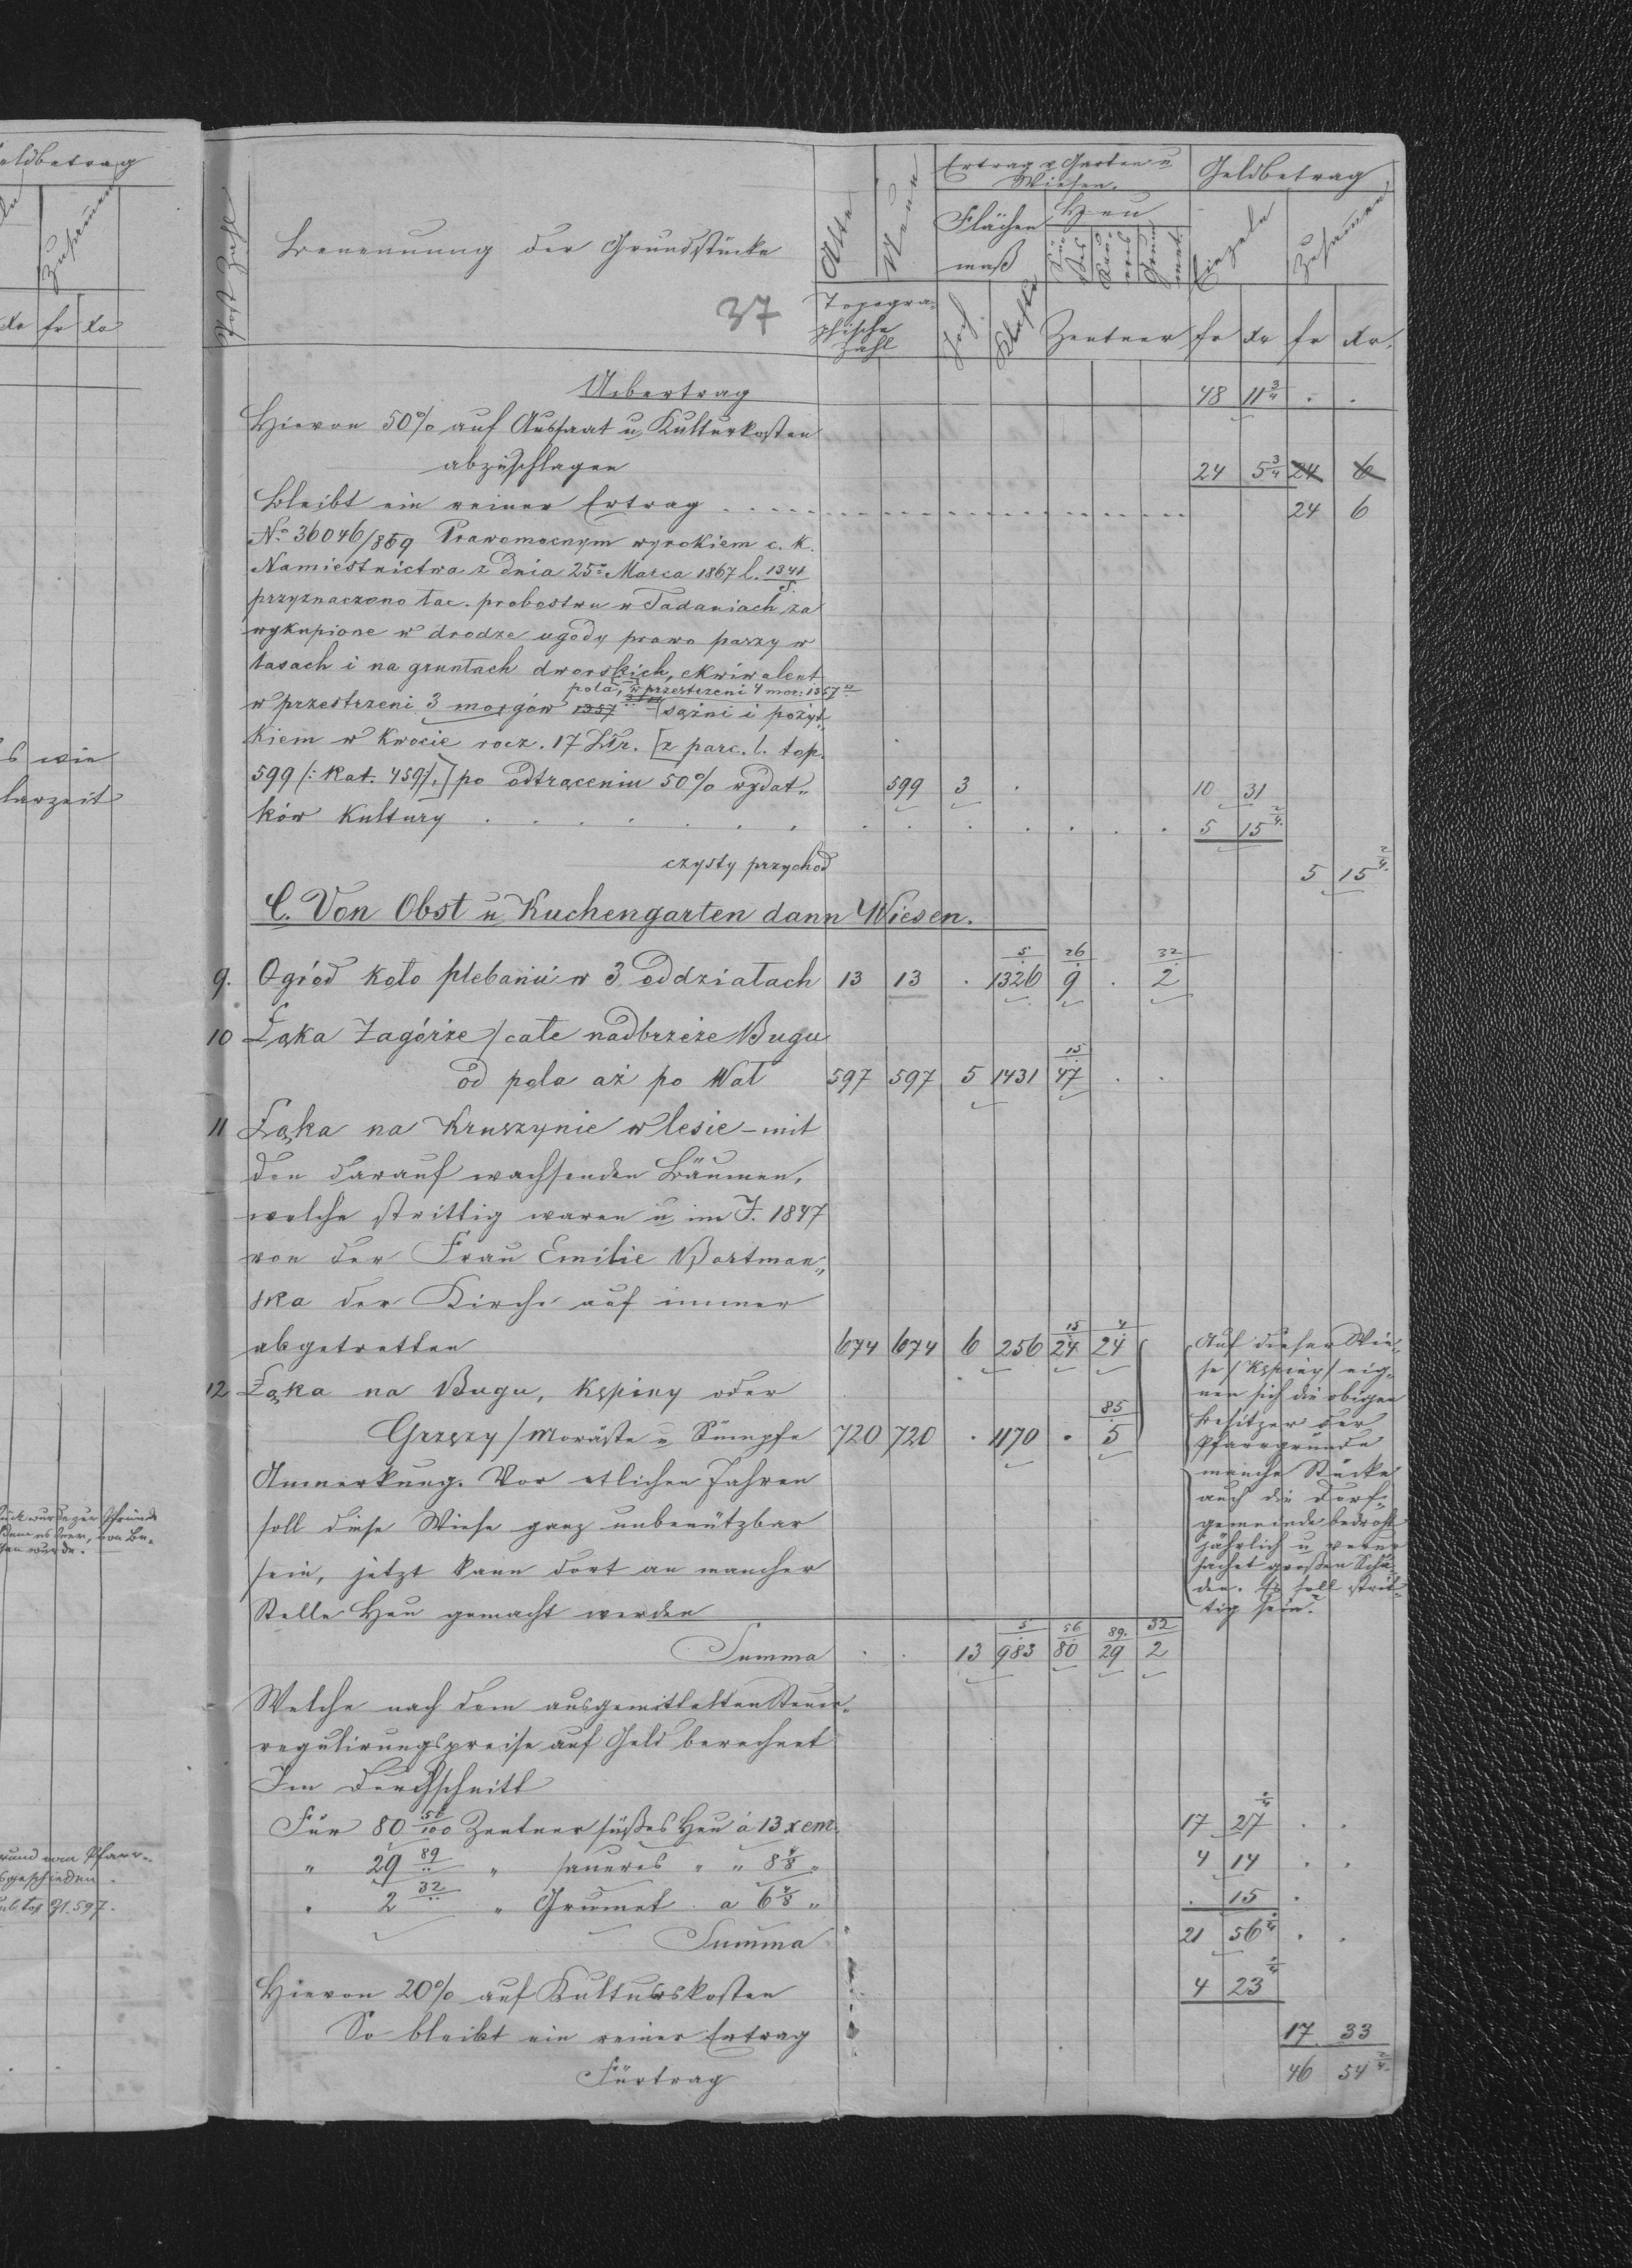 oldbetrag
Zusammen
xr fr xr
Post Zahl
Benennung der Grundstücke
37
Alte
Neue
Topogra-
phische
Zahl
Ertrag v Garten u
Wiesen.
Flächen
maß
Joch
Klafter
Heu
Zentner
Geldbetrag
Einzeln
Zusammen
fr xr fr xr.
Uibertrag 48 11 3/4 . .
Hievon 50% auf Aussaat u Kulturkosten
abzuschlagen 24 5 3/4 24 6
Bleibt ein reiner Ertrag 24 6
No 36046/869 Prawomocnym wyrokiem c. k.
Namiestnictwa z dnia 25go Marca 1867 l. 1341/S.
przyznaczono łac. probostwu w Tadaniach za
wykupione w drodze ugody prawo paszy w
lasach i na gruntach dworskich, ekwiwalent
pola, w przestrzeni 4 mor: 1357
w przestrzeni 3 morgów 1357 sążni i pożyt-
kiem w kwocie rocz. 17 Złr. [z parc. l. top.
599 (: kat. 459:),] po odtrąceniu 50% wydat„ 599 3 . 10 31
ków Kultury 5 15 2/4
czysty przychód 5 15 2/4
C. Von Obst u Kuchengarten dann Wiesen.
5 26 32
9. Ogród koło plebanii w 3 oddziałach 13 13 . 1326 9 . 2
10 Łąka Zagórze / całe nadbrzeże Bugu
15
od pola aż po Wał 597 597 5 1431 47 . .
11 Łąka na Kruszynie w lesie - mit
den darauf wachsenden Bäumen,
welche strittig waren u im J. 1847
von der Frau Emilie Bartman„
ska der Kirche auf immer
15 4
abgetretten 674 674 6 256 24 24
12 Łąka na Bugu, Kępiny oder
85
Grzęzy / Moräste u Sümpfe 720 720 . 1170 . 5
Anmerkung. Vor etlichen Jahren
soll diese Wiese ganz unbenützbar
sein, jetzt kann dort an mancher
Stelle Heu gemacht werden
Auf dieser Wie„
se / Kępiny / eig„
nen sich die obigen
Besitzer der
Pfarrgründe
manche Stücke
auch die Dorf„
gemeinde bedroht
jährlich u verur
sachet großen Scha
den. Es soll strit„
tig sein.
5 56 89 32
Summa . . 13 983 80 29 2
Welche nach dem ausgemittelten Steuer„
regulirungspreise auf Geld berechnet
Im Durchschnitt
Für 80 56/100 Zentner süßes Heu à 13 x em. 17 27 2/4 . .
„ 29 89 „ saueres „ „ 8 4/8 „ 4 14 . .
„ 2 32 „ Grumet a 6 4/8 „ . 15 .
Summa 21 56 2/4 . .
Hievon 20% auf Kulturskosten 4 23 2/4
So bleibt ein reiner Ertrag 17 33
Fürtrag 46 54 2/4